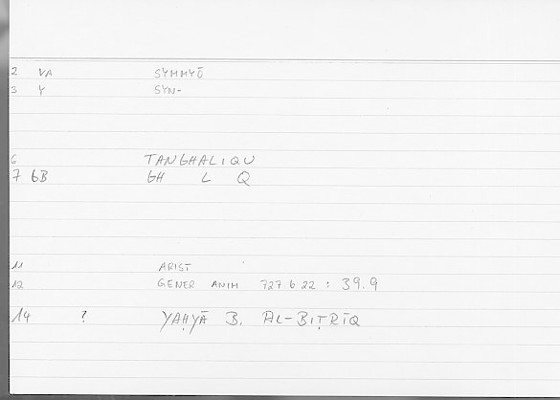 2 VA SYMMYŌ
3 Y SYN-
6 TANGHALIQU
7 GB GH L Q
11 ARIST
12 GENER ANIM 727 b 22 : 39.9
14 ? YAḤYĀ B. AL-BIṬRĪQ